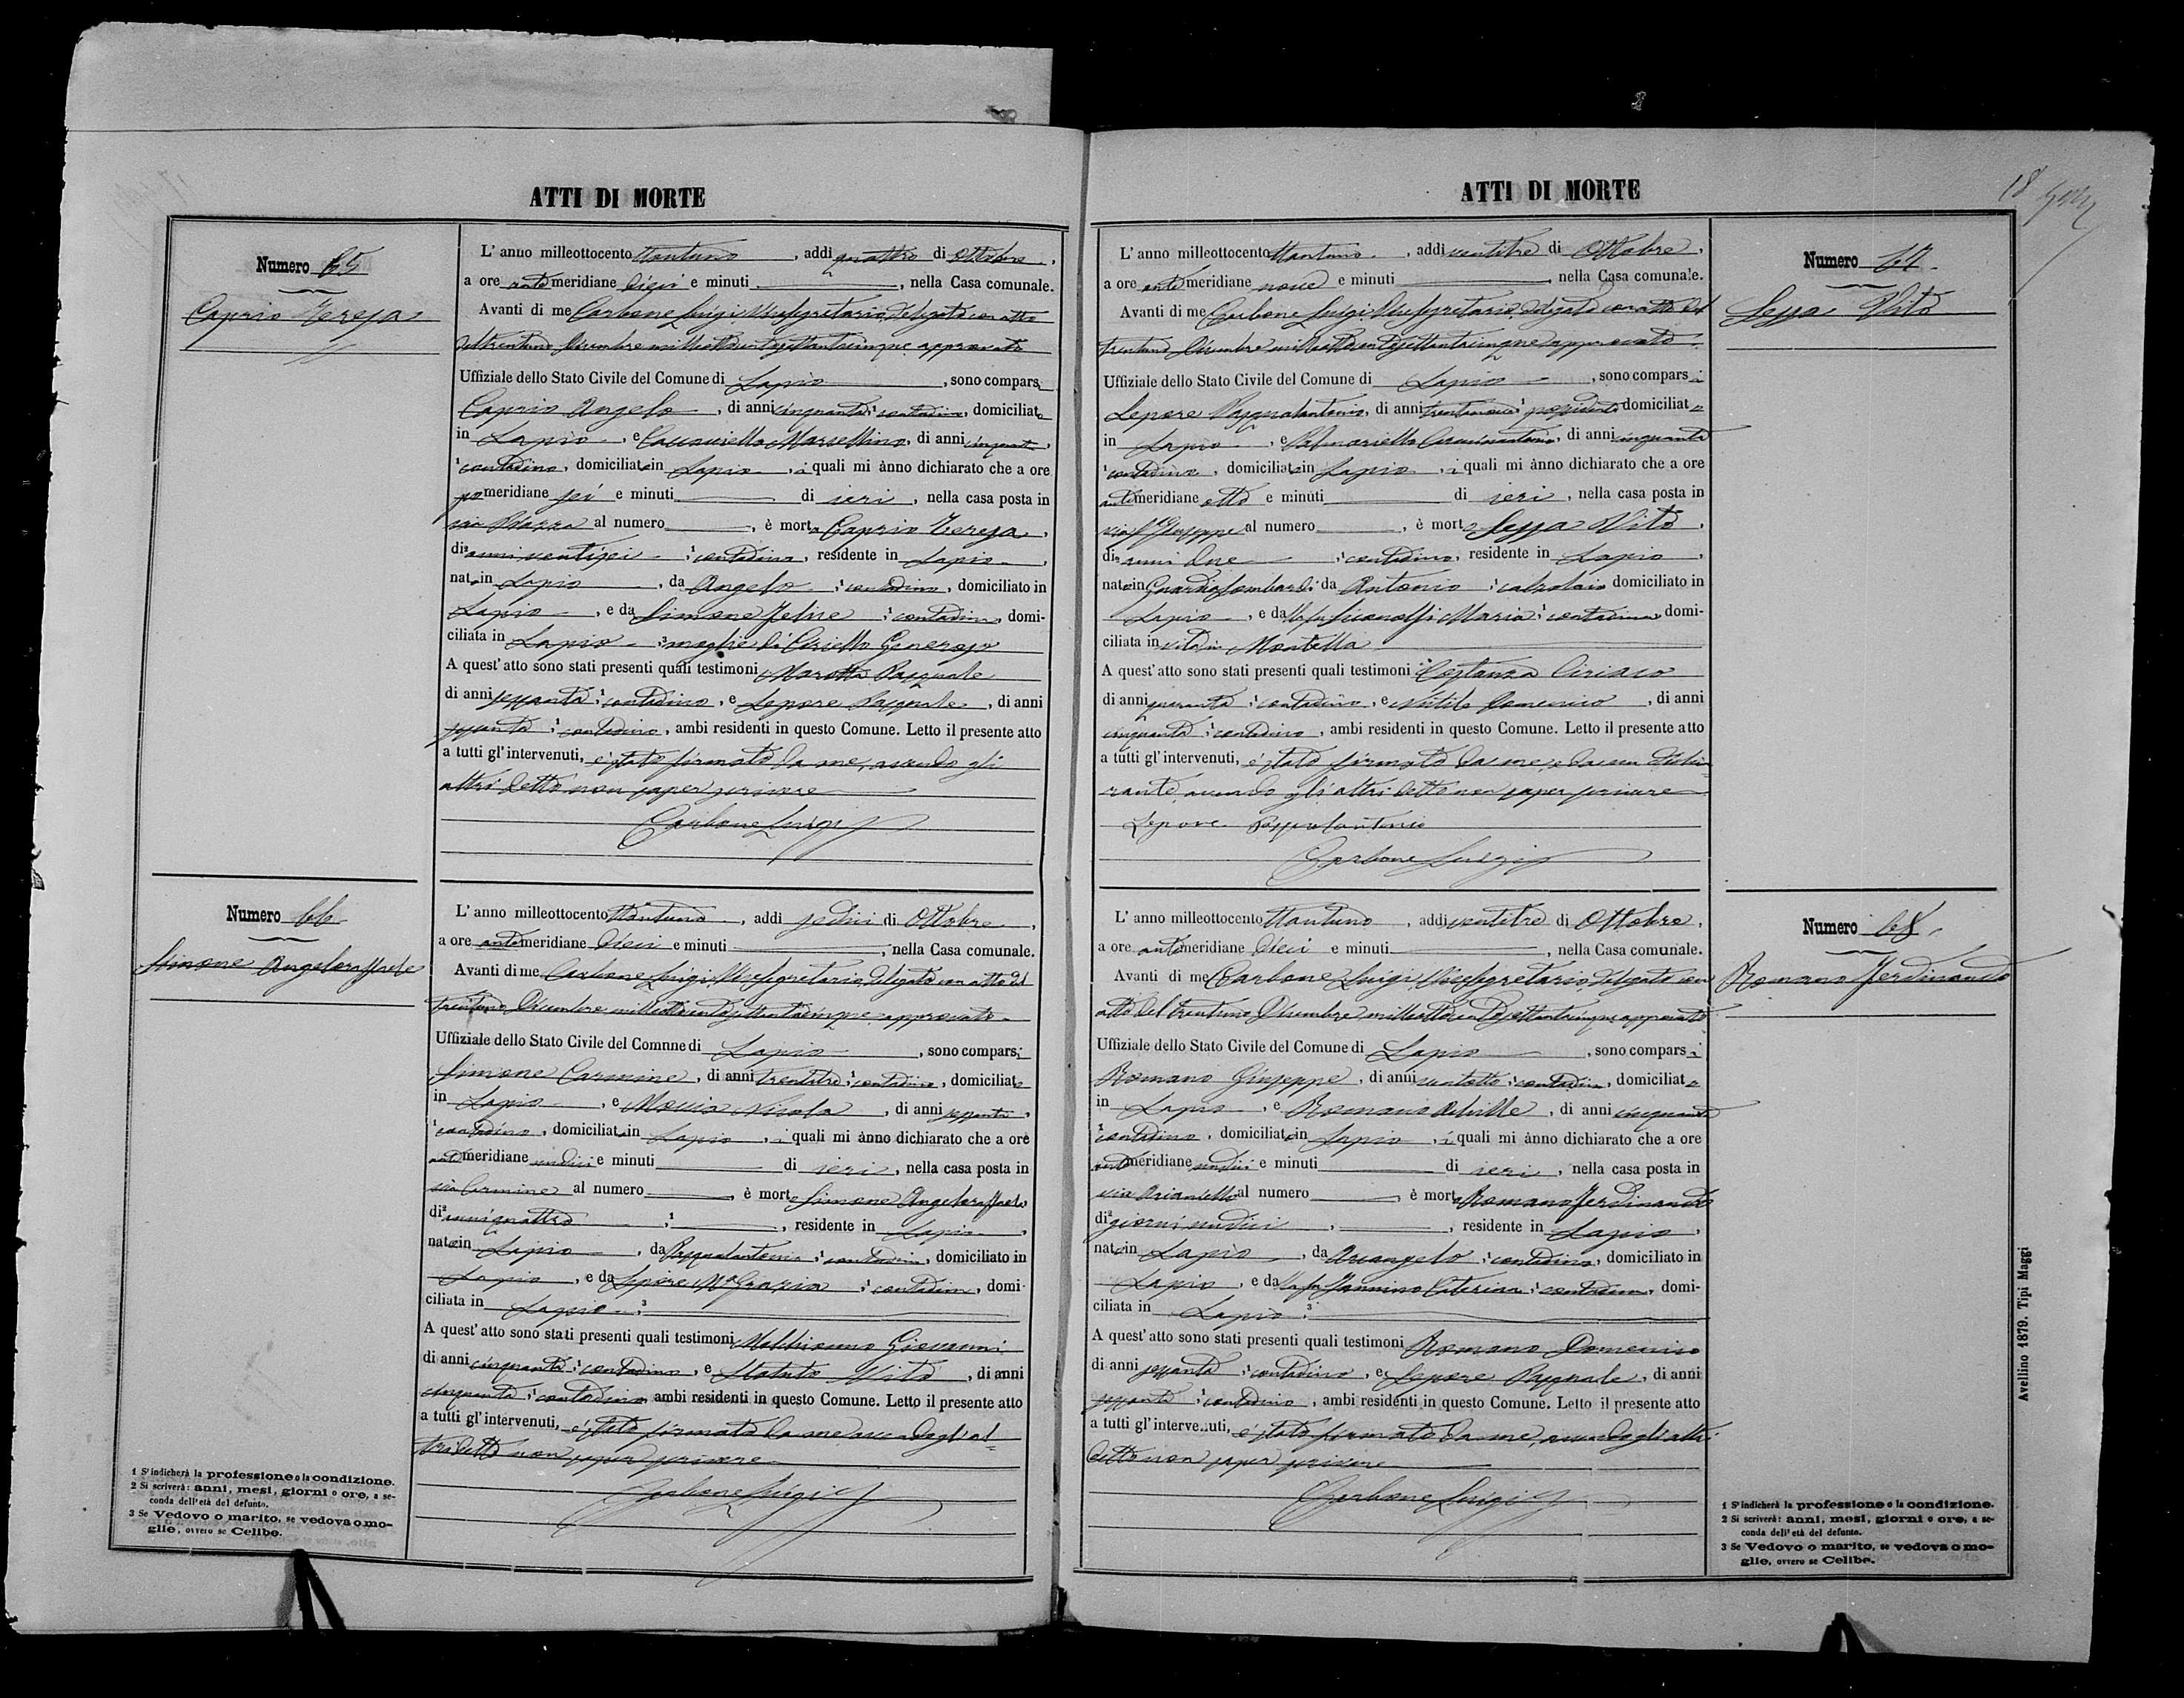 ATTI DI MORTE
Numero 65
Caprio Teresa
L'anno milleottocento ottantuno, addì quattro di Ottobre,
a ore antemeridiane dieci e minuti, nella Casa comunale.
Avanti di me Carbone Luigi Vicesegretario delegato con atto
del trentuno Dicembre milleottocentosettantacinque approvato
Uffiziale dello Stato Civile del Comune di Lapio, sono comparsi
Caprio Angelo, di anni cinquanta, contadino, domiciliato
in Lapio, e Marsellino, di anni cinquanta,
contadino, domiciliato in Lapio, i quali mi ànno dichiarato che a ore
pomeridiane sei e minuti di ieri, nella casa posta in
via Piazza al numero, è morta Caprio Teresa,
di anni ventisei, contadina, residente in Lapio,
nata in Lapio, da Angelo, contadino, domiciliato in
Lapio, e da Simone Felice, contadina, domi-
ciliata in Lapio, moglie di Ciriello Generoso
A quest'atto sono stati presenti quali testimoni Marotta Pasquale
di anni sessanta, contadino, e Lepore Pasquale, di anni
sessanta, contadino, ambi residenti in questo Comune. Letto il presente atto
a tutti gl'intervenuti, è stato firmato da me, avendo gli
altri detto non saper scrivere
Carbone Luigi
Numero 66
Simone Angeloraffaele
L'anno milleottocento ottantuno, addì sedici di Ottobre,
a ore antemeridiane dieci e minuti, nella Casa comunale.
Avanti di me Carbone Luigi Vicesegretario delegato con atto del
trentuno Dicembre milleottocentosettantacinque approvato
Uffiziale dello Stato Civile del Comnne di Lapio, sono comparsi
Simone Carmine, di anni trentatre, contadino, domiciliato
in Lapio, e Moccia Nicola, di anni sessanta,
contadino, domiciliato in Lapio, i quali mi ànno dichiarato che a ore
antemeridiane undici e minuti di ieri, nella casa posta in
via Carmine al numero, è morto Simone Angeloraffaele
di anni quattro, residente in Lapio,
nato in Lapio, da Pasqualantonio, contadino, domiciliato in
Lapio, e da Lepore Ma Grazia, contadina, domi-
ciliata in Lapio
A quest'atto sono stati presenti quali testimoni Giovanni
di anni cinquanta, contadino, e Vito, di anni
cinquanta, contadino, ambi residenti in questo Comune. Letto il presente atto
a tutti gl'intervenuti, è stato firmato da me avendo gli al-
tri detto non saper scrivere
Carbone Luigi
1 S'indicherà la professione o la condizione.
2 Si scriverà: anni, mesi, giorni o ore, a se-
conda dell'età del defunto.
3 Se Vedovo o marito, se vedova o mo-
glie, ovvero se Celibe.
ATTI DI MORTE
18
Numero 67
Sessa Vito
L'anno milleottocento ottantuno, addì ventitre di Ottobre,
a ore antemeridiane nove e minuti, nella Casa comunale.
Avanti di me Carbone Luigi Vicesegretario delegato con atto del
trentuno Dicembre milleottocentosettantacinque approvato
Uffiziale dello Stato Civile del Comune di Lapio, sono comparsi
Lepore Pasqualantonio, di anni trentanove, possidente domiciliato
in Lapio, e Palmariello, di anni cinquanta
contadino, domiciliato in Lapio, i quali mi ànno dichiarato che a ore
antemeridiane otto e minuti di ieri, nella casa posta in
via S. Giuseppe al numero, è morto Sessa Vito,
di anni due, contadino, residente in Lapio,
nato in Guardia Lombardi da Antonio, calzolaio domiciliato in
Lapio, e da Maria, contadina domi-
ciliata in Montella
A quest'atto sono stati presenti quali testimoni Costanza Ciriaco
di anni quaranta, contadino, e Domenico, di anni
cinquanta, contadino, ambi residenti in questo Comune. Letto il presente atto
a tutti gl'intervenuti, è stato firmato da me, e da un dichia-
rante, avendo gli altri detto non saper scrivere
Lepore Pasqualantonio
Carbone Luigi
Numero 68
Romano Ferdinando
L'anno milleottocento ottantuno, addì ventitre di Ottobre,
a ore antemeridiane dieci e minuti, nella Casa comunale.
Avanti di me Carbone Luigi Vicesegretario delegato con
atto del trentuno Dicembre milleottocentosettantacinque approvato
Uffiziale dello Stato Civile del Comune di Lapio, sono comparsi
Romano Giuseppe, di anni ventotto, contadino, domiciliato
in Lapio, e Romano Achille, di anni cinquanta
contadino, domiciliato in Lapio, i quali mi ànno dichiarato che a ore
antemeridiane undici e minuti di ieri, nella casa posta in
via Arianiello al numero, è morto Romano Ferdinando
di giorni undici, residente in Lapio,
nato in Lapio, da Arcangelo, contadino, domiciliato in
Lapio, e da Iannino Caterina, contadina, domi-
ciliata in Lapio
A quest'atto sono stati presenti quali testimoni Romano Domenico
di anni sessanta, contadino, e Lepore Pasquale, di anni
sessanta, contadino, ambi residenti in questo Comune. Letto il presente atto
a tutti gl'intervenuti, è stato firmato da me, avendo gli altri
detto non saper scrivere
Carbone Luigi
1 S'indicherà la professione o la condizione.
2 Si scriverà: anni, mesi, giorni o ore, a se-
conda dell'età del defunto.
3 Se Vedovo o marito, se vedova o mo-
glie, ovvero se Celibe.
Avellino 1879. Tipi Maggi